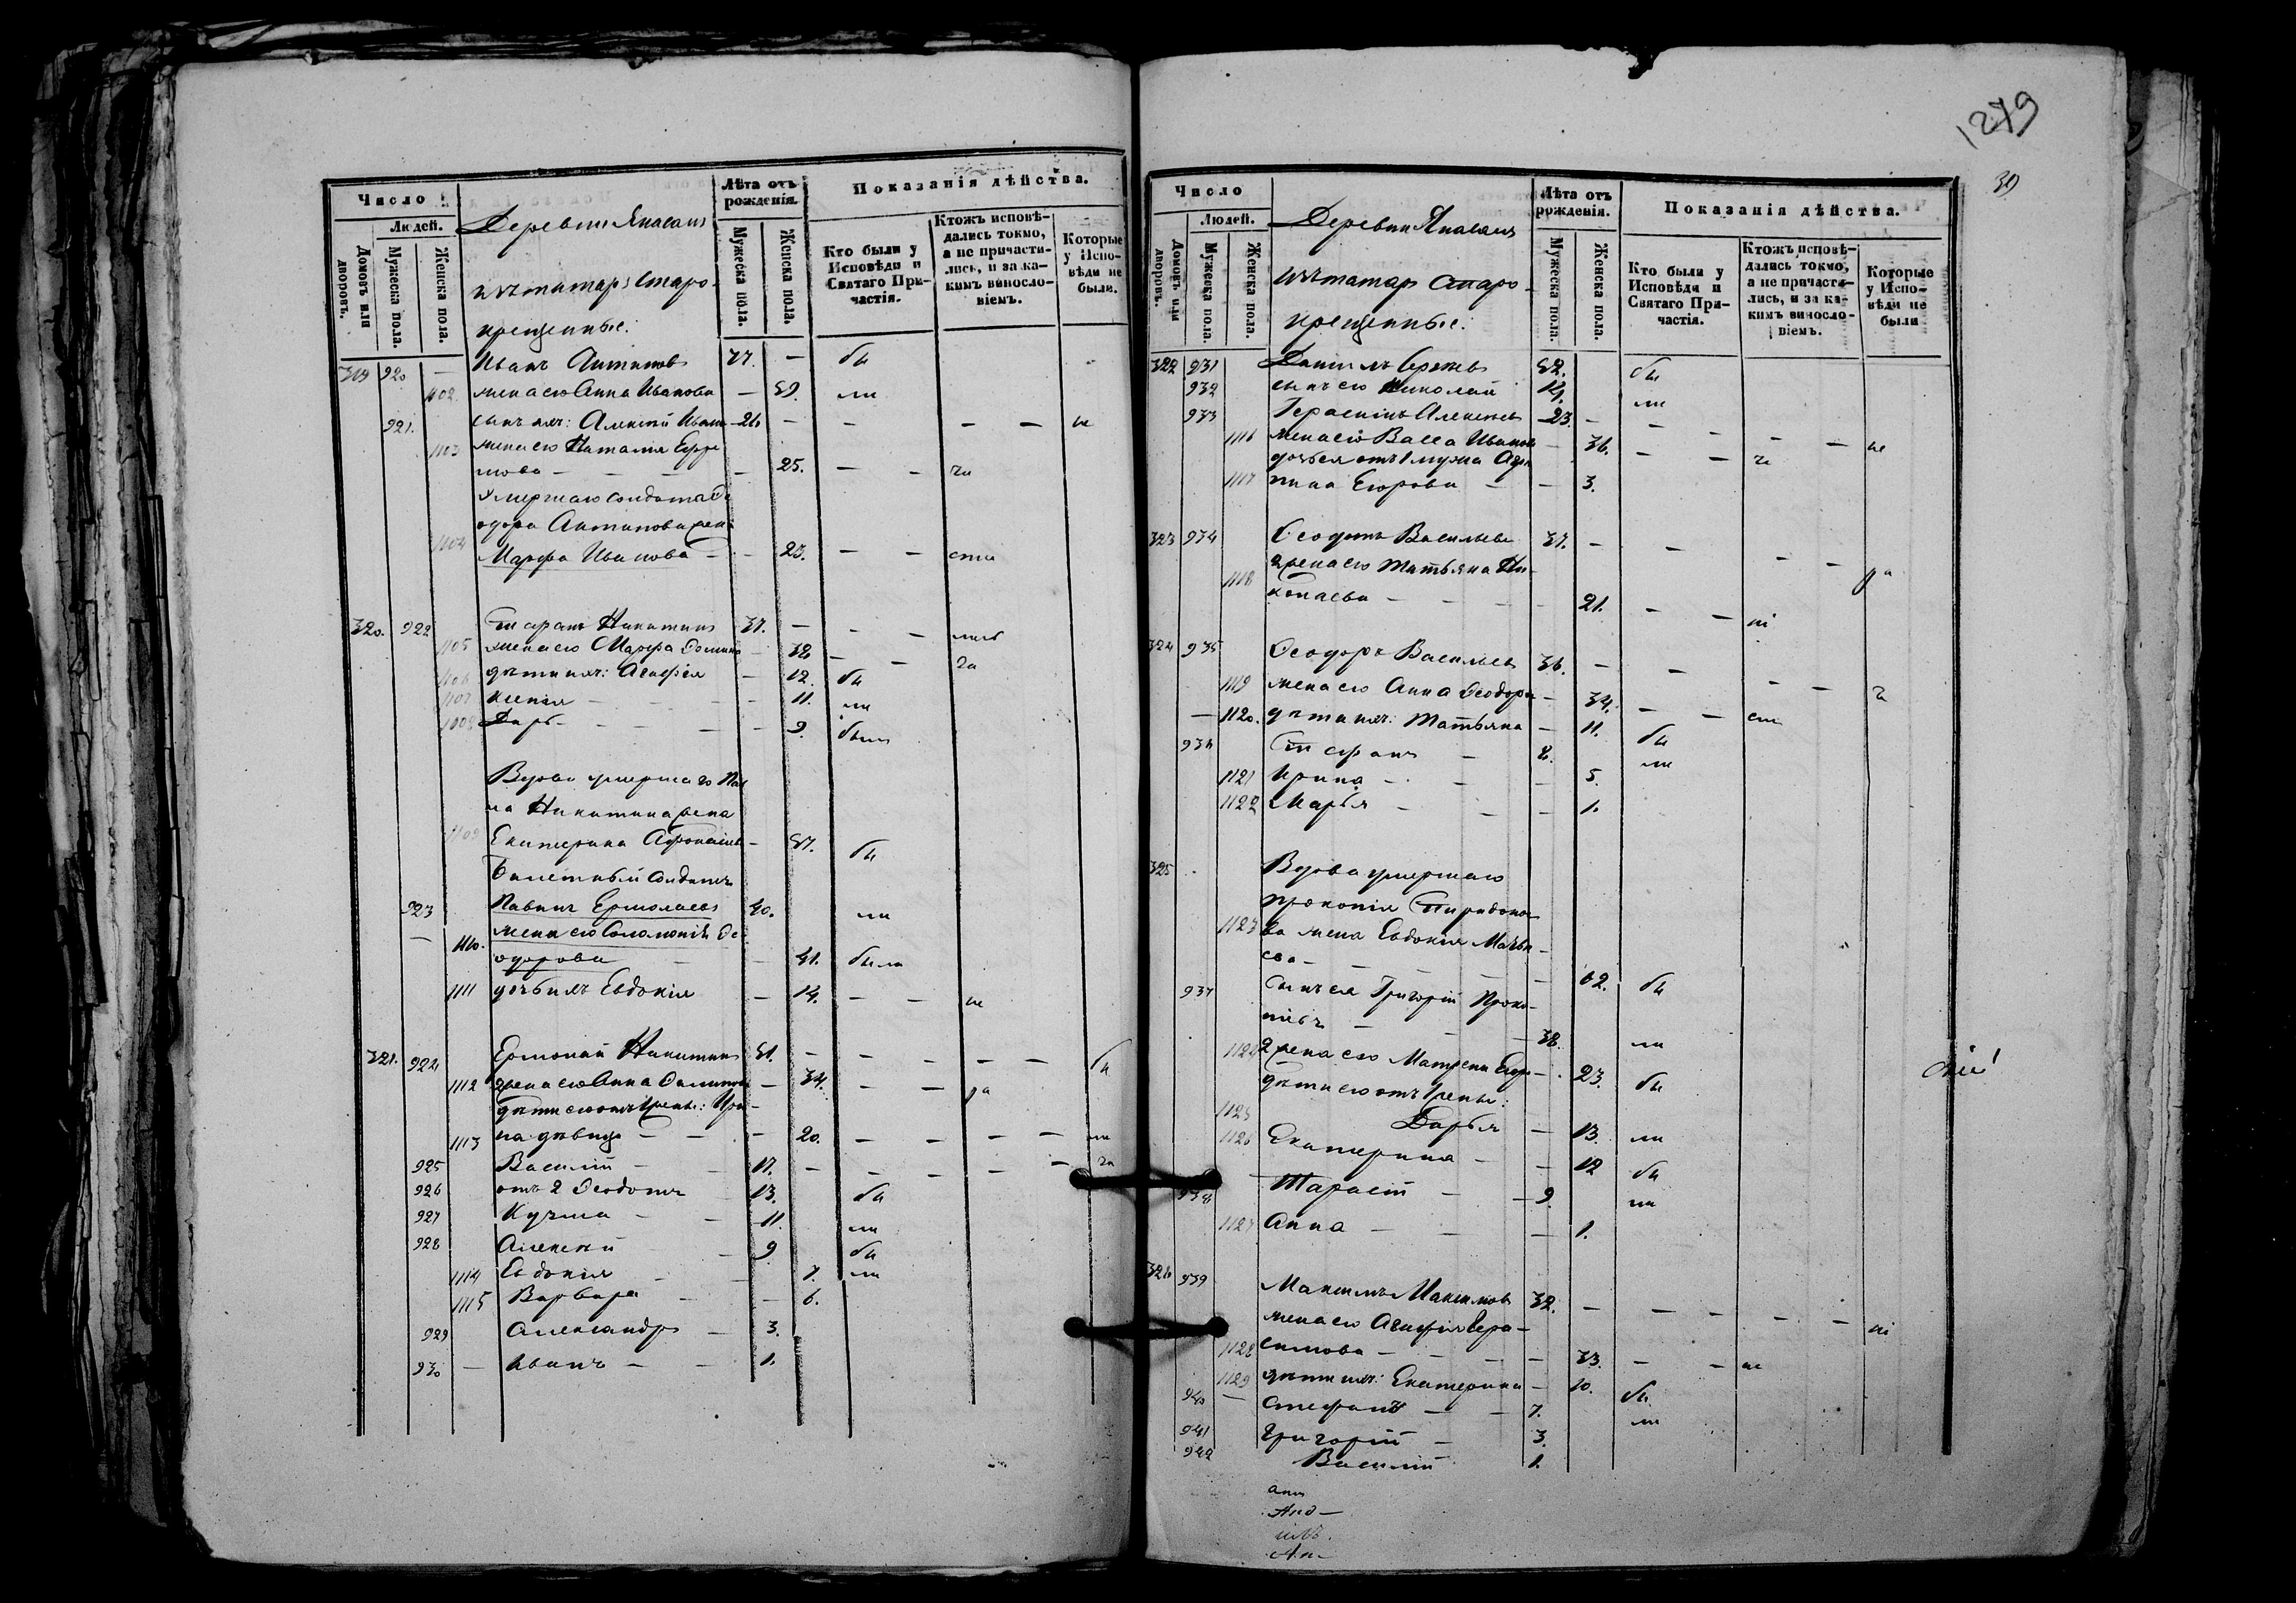 1279
30
Число
Людей.
Домовъ или дворовъ.
Мужеска пола.
Женска пола.
Деревни
изъ татаръ старо-
крещенные:
Лѣта отъ рожденія.
Мужеска пола.
Женска пола.
Показанія дѣйства.
Кто были у Исповѣди и Святаго Причастія.
Ктожъ исповѣ-
дались токмо,
а не причасти-
лись, и за ка-
кимъ виносло-
віемъ.
Которые
у Испо-
вѣди не
были.
319 920 — Иванъ Антиповъ 77. — бы
1102 жена его Анна Иванова — 59. ли
921. сынъ ихъ: Алексѣй Иван 26 — — — — не
1103 жена его Наталія Ефи
мова — — — 25. — —
умершаго солдата Ѳе
одора Антипова жена
1104 Марфа Иванова — — 23. — —
320. 922 Стефанъ Никитинъ 37. — — —
1105 жена его Марфа — 38 — —
1106 дѣти ихъ: Агафія — 12. бы
1107 Ксенія — — — 11. ли
1108 Дарья — — — 9. были
Вдова умершаго
Никитина жена
1109 Екатерина Афонасьев — 57. бы
Билетный солдатъ
923 Павелъ Ермолаевъ 40. ли
— 1110. жена его Соломонія Ѳе
одорова — — 41. были
1111 дочь ихъ Евдокія — 14. — — не
321. 924 Ермолай Никитинъ 51. — — — — — бы
1112 2 жена его Анна Филипов — 34. — —
дѣти его отъ 1 жены: Ири-
1113 на дѣвица — — — 20. — — — — ли
925 Василій — — 17. — — — — —
926 отъ 2 Ѳеодотъ 13. бы
927 Кузма — — 11. ли
928 Алексѣй — 9 бы
1114 Евдокія — — 7. ли
1115 Варвара — — 6.
929 Александръ — 3.
930 — Иванъ — — 1.
Число
Людей.
Домовъ или дворовъ.
Мужеска пола.
Женска пола.
Деревни
изъ татаръ старо-
крещенные:
Лѣта отъ рожденія.
Мужеска пола
Женска пола.
Показанія дѣйства.
Кто были у Исповѣди и Святаго Причастія.
Ктожъ исповѣ-
дались токмо,
а не причасти-
лись, и за ка-
кимъ виносло-
віемъ.
Которые
у Испо-
вѣди не
были
322 931 Данилъ Сергѣевъ 52. бы
932 сынъ его Николай 14. ли
933 Герасимъ Алексѣевъ 23. — — — — — не
1116 жена его Васса Иванов — 36. — —
дочь ея отъ 1 мужа Агри
1117 пина Егорова — — 3.
323 934 Ѳеодотъ Васильевъ 37. — — — —
1118 2 жена его Татьяна Ни-
колаева — — — — 21. — —
324 935 Ѳеодоръ Васильевъ 36. — — — —
1119 жена его Анна Ѳеодоров — 34. — —
— 1120. дѣти ихъ: Татьяна — 11. бы
936 Стефанъ — 8. ли
1121 Ирина — — — 5.
1122 Марья — — — 1.
325 Вдова умершаго
Прокопія Спиридоно
1123 ва жена Евдокія Матвѣ-
ева — — — — 62. бы
937 сынъ ея Григорій Проко-
піевъ — — — 38. ли
1124 2 жена его Матрена Егор — 23. бы
дѣти его отъ 1 жены:
1125 Дарья — 13. ли
1126 Екатерина — — 12 бы
938 Тарасій — — 9. ли
1127 Анна — — — 1.
326 939 Максимъ Максимовъ 32. — — — — —
жена его Агафія Гера-
1128 симова — — — — 33. — — не
1129 дѣти ихъ: Екатерина — 10. бы
940 — Стефанъ — — 7. ли
941 Григорій — 3.
942 Василій 1.